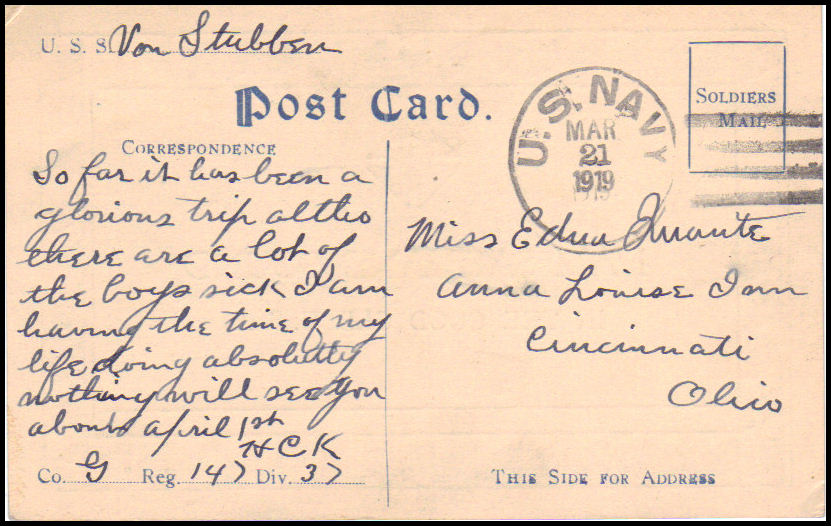 U. S. S. Von Stubben
Post Card.
SOLDIERS
MAIL
U.S. NAVY
MAR
21
1919
CORRESPONDENCE
So far it has been a
glorious trip altho
there are a lot of
the boys sick I am
having the time of my
life, doing absolutely
nothing will see you
about April 1st
HCK
Co. G Reg. 147 Div. 37
Miss Edna
Anna Louise Inn
Cincinnati
Ohio
THIS SIDE FOR ADDRESS